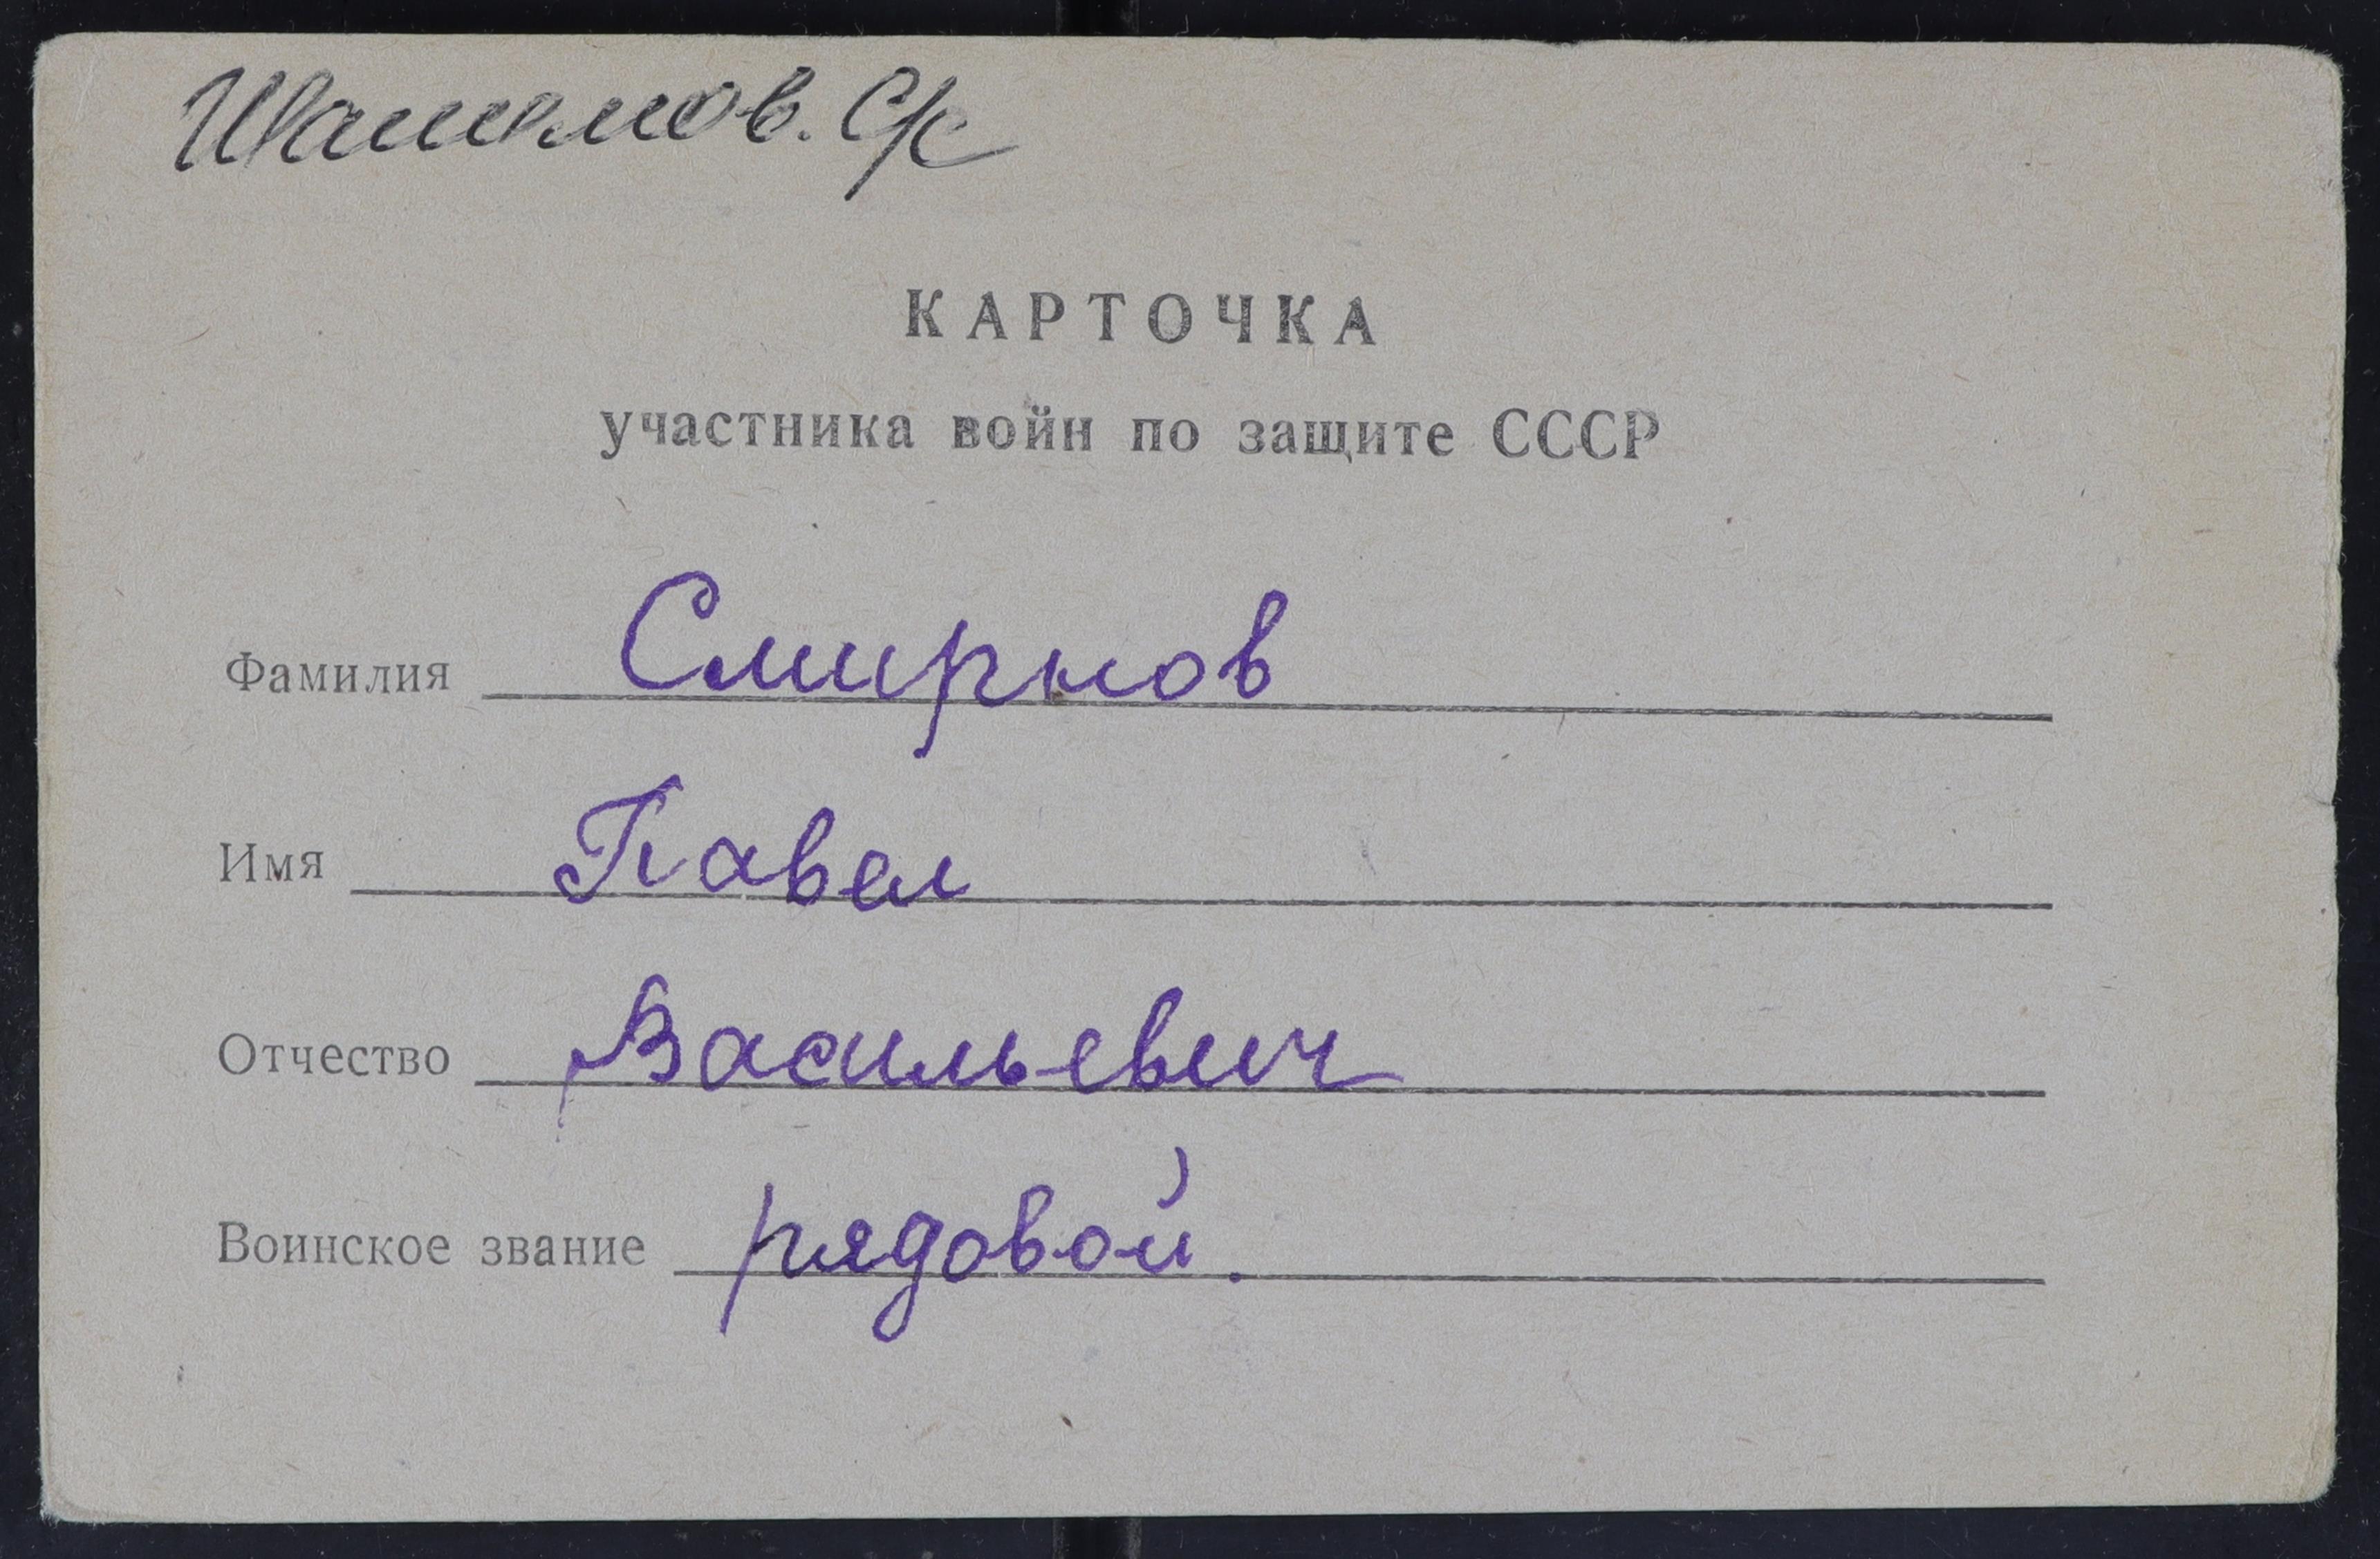 КАРТОЧКА
участника войн по защите СССР
Фамилия Смирнов
Имя Павел
Отчество Васильевич
Воинское звание рядовой.